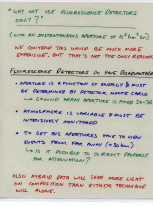 "WHY NOT USE FLUORESCENCE DETECTORS
ONLY?"
(WITH AN INSTANTANEOUS APERTURE OF
WE CONTEND THIS WOULD BE MUCH MORE
EXPENSIVE, BUT THAT'S NOT THE ONLY REASON
FLUORESCENCE DETECTORS DO HAVE DISADVANTAGES
• APERTURE IS A FUNCTION OF ENERGY & MUST
BE DETERMINED BY DETECTOR MONTE CARLO
↳ GROUND ARRAY APERTURE IS
• ATMOSPHERE IS VARIABLE & MUST BE
INTENSIVELY MONITORED
• TO GET BIG APERTURES HAVE TO VIEW
EVENTS FROM FAR AWAY
↳ IS IT POSSIBLE TO CORRECT PROPERLY
FOR ATTENUATION?
ALSO HYBRID DATA WILL SHED MORE LIGHT
ON COMPOSITION THAN EITHER TECHNIQUE
WILL ALONE.